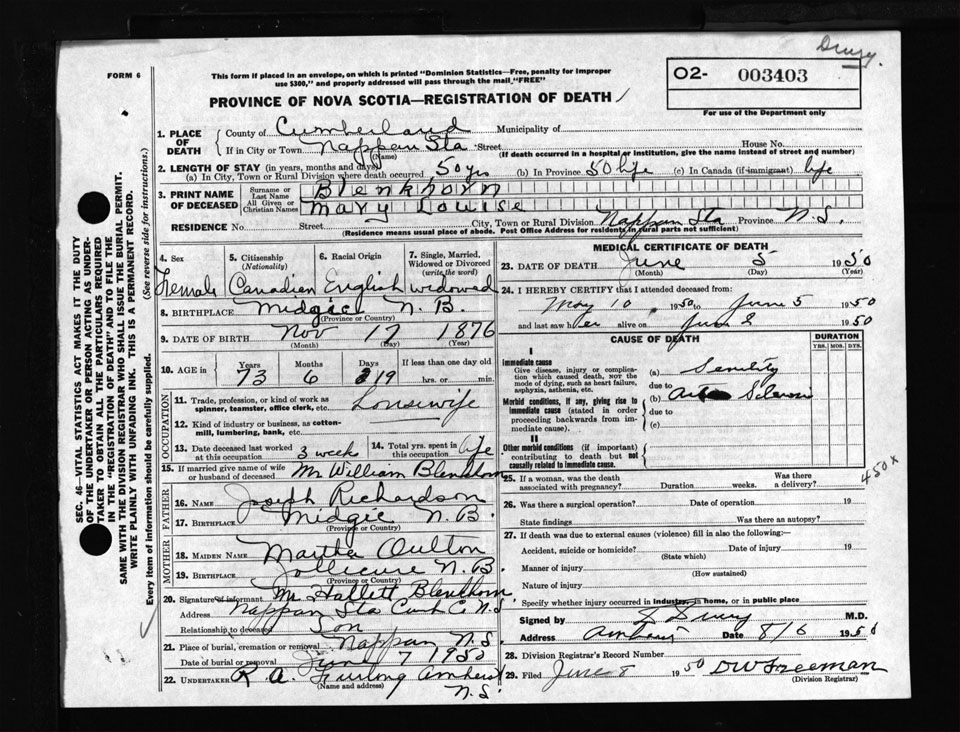 Drury.
FORM 6
This form if placed in an envelope, on which is printed "Dominion Statistics—Free, penalty for improper
use $300," and properly addressed will pass through the mail "FREE"
O2- 003403
For use of the Department only
PROVINCE OF NOVA SCOTIA—REGISTRATION OF DEATH
SEC. 46—VITAL STATISTICS ACT MAKES IT THE DUTY
OF THE UNDERTAKER OR PERSON ACTING AS UNDER-
TAKER TO OBTAIN ALL THE PARTICULARS REQUIRED
IN THE "REGISTRATION OF DEATH" AND TO FILE THE
SAME WITH THE DIVISION REGISTRAR WHO SHALL ISSUE THE BURIAL PERMIT.
WRITE PLAINLY WITH UNFADING INK. THIS IS A PERMANENT RECORD.
Every item of information should be carefully supplied. (See reverse side for instructions.)
1. PLACE OF DEATH County of Cumberland Municipality of
If in City or Town Nappan Sta Street House No.
(Name) (If death occurred in a hospital or institution, give the name instead of street and number)
2. LENGTH OF STAY (in years, months and days)
(a) In City, Town or Rural Division where death occurred 50 yrs (b) In Province 50 life (c) In Canada (if immigrant) life
3. PRINT NAME OF DECEASED Surname or Last Name Blenkhorn
All Given or Christian Names Mary Louise
RESIDENCE No. Street City, Town or Rural Division Nappan Sta Province N.S.
(Residence means usual place of abode. Post Office Address for residents in rural parts not sufficient)
4. Sex 5. Citizenship (Nationality) 6. Racial Origin 7. Single, Married, Widowed or Divorced (write the word)
Female Canadian English widowed
8. BIRTHPLACE Midgic N.B.
(Province or Country)
9. DATE OF BIRTH Nov 17 1876
(Month) (Day) (Year)
10. AGE in Years Months Days If less than one day old
73 6 19 hrs. or min.
OCCUPATION
11. Trade, profession, or kind of work as
spinner, teamster, office clerk, etc. Housewife
12. Kind of industry or business, as cotton-
mill, lumbering, bank, etc.
13. Date deceased last worked at this occupation 3 weeks 14. Total yrs. spent in this occupation life
15. If married give name of wife or husband of deceased Mr William Blenkhorn
FATHER
16. NAME Joseph Richardson
17. BIRTHPLACE Midgic N.B.
(Province or Country)
MOTHER
18. MAIDEN NAME Martha Oulton
19. BIRTHPLACE Jollicure N.B.
(Province or Country)
20. Signature of informant Mr Hallett Blenkhorn
Address Nappan Sta Cumb Co N.S.
Relationship to deceased Son
21. Place of burial, cremation or removal Nappan N.S.
Date of burial or removal June 7 1950
22. UNDERTAKER R. A. Furlong Amherst
(Name and address) N.S.
MEDICAL CERTIFICATE OF DEATH
23. DATE OF DEATH June 5 1950
(Month) (Day) (Year)
24. I HEREBY CERTIFY that I attended deceased from:
May 10, 1950 to June 5, 1950
and last saw her alive on June 2 1950
CAUSE OF DEATH DURATION
YRS. MOS. DYS.
I
Immediate cause
Give disease, injury or complica-
tion which caused death, NOT the
mode of dying, such as heart failure,
asphyxia, asthenia, etc.
(a) Senility
due to
Morbid conditions, if any, giving rise to
immediate cause (stated in order
proceeding backwards from im-
mediate cause).
(b)
due to
(c)
II
Other morbid conditions (if important)
contributing to death but not
causally related to immediate cause.
450x
25. If a woman, was the death
associated with pregnancy? Duration weeks. Was there a delivery?
26. Was there a surgical operation? Date of operation 19
State findings Was there an autopsy?
27. If death was due to external causes (violence) fill in also the following:—
Accident, suicide or homicide? Date of injury 19
(State which)
Manner of injury
(How sustained)
Nature of injury
Specify whether injury occurred in industry, in home, or in public place
Signed by Drury M.D.
Address Amherst Date 8/6 1950
28. Division Registrar's Record Number
29. Filed June 8 1950 DW Freeman
(Division Registrar)